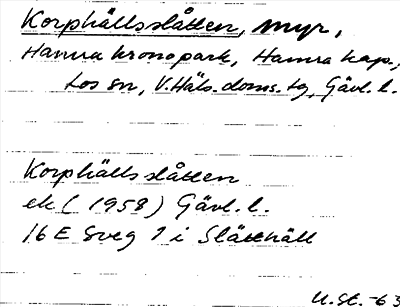 Korphällsslåtten, myr,
Hamra kronopark, Hamra kap.,
Los sn, V. Häls. doms. tg, Gävl. l.
Korphällsslåtten
ek (1958) Gävl. l.
16 E Sveg 9 i Slåtthäll
U. St. -63